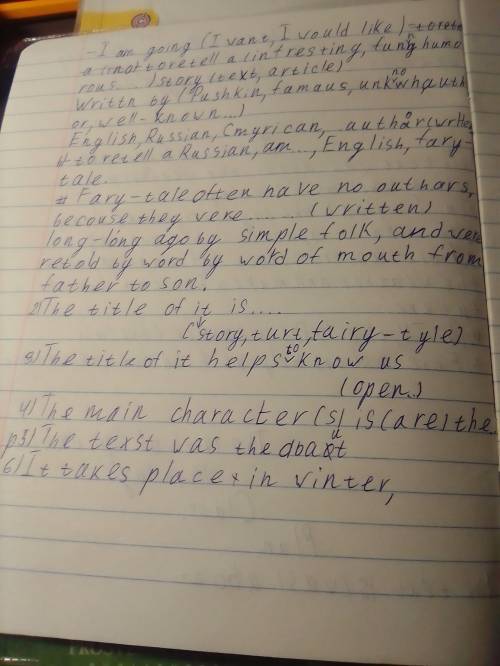 - I am going (I vant, I vould like)
a (not to retell a (intresting, funny humo
rous... ) story (text, article)
Writtn by (Pushkin, famaus, unknown auth
or, well-known...)
English, Russian, Cmyrican, ... author (writte
# to retell a Russian, am..., English, fary-
tale.
# Fary-tale often have no outhars,
becouse they vere ....... (written)
long-long ago by simple folk, and vere
retold by word by word of mouth from
father to son.
2) The title of it is....
(story, turt, fairy-tyle)
3) The title of it helps to know us
(open.)
4) The main character (s) is (are) the
5) The texst vas the about
6) It takes place in vinter,